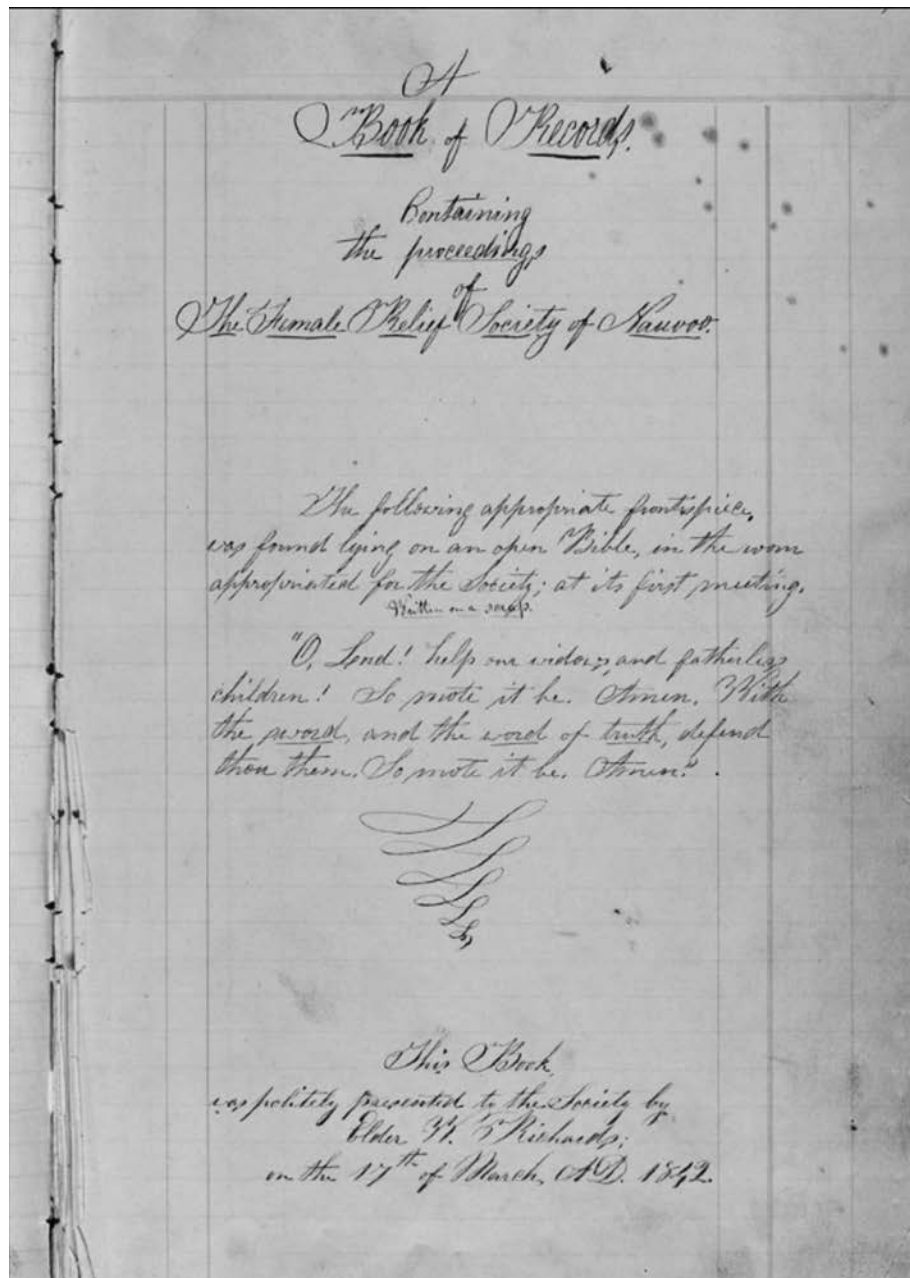 A
Book of Records.
Containing
the proceedings
of
The Female Relief Society of Nauvoo.
The following appropriate frontispiece,
was found lying on an open Bible, in the room
appropriated for the Society; at its first meeting.
Written on a scrap.
"O, Lord! help our widows, and fatherless
children! So mote it be. Amen. With
the sword, and the word of truth, defend
thou them. So mote it be. Amen."
This Book,
was politely presented to the Society by
Elder W. Richards;
on the 17th of March, A.D. 1842.